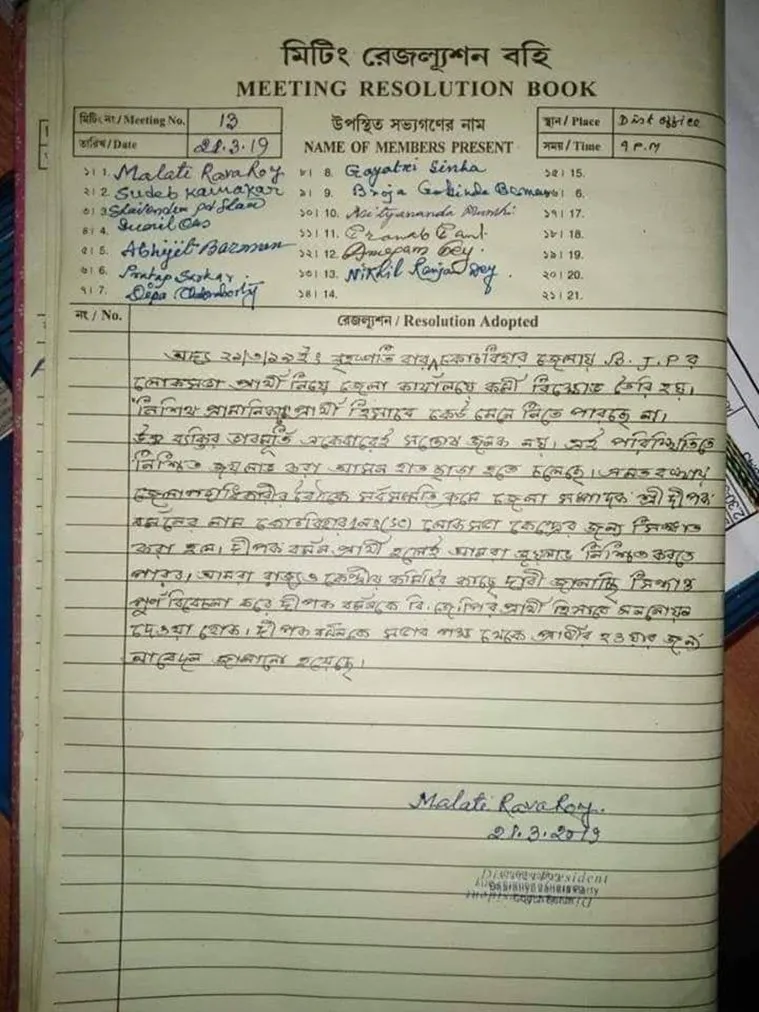 মিটিং রেজল্যুশন বহি
MEETING RESOLUTION BOOK
মিটিং নং / Meeting No. 13
তারিখ / Date 21.3.19
উপস্থিত সভ্যগণের নাম
NAME OF MEMBERS PRESENT
স্থান / Place Dist office
সময় / Time 9 P.M
১। 1. Malati Rava Roy
২। 2. Sudeb Karmakar
৩। 3.
৪। 4. Sunil Das
৫। 5. Abhijit Barman
৬। 6. Pratap Sarkar.
৭। 7. Dipa Chakraborty
৮। 8. Gayatri Sinha
৯। 9. Broja Gobinda Barman
১০। 10. Nityananda Munshi
১১। 11. Pranab
১২। 12. Anupam Dey.
১৩। 13. Nikhil Ranjan Dey.
১৪। 14.
১৫। 15.
6.
১৭। 17.
১৮। 18.
১৯। 19.
২০। 20.
২১। 21.
নং / No.
রেজল্যুশন / Resolution Adopted
অদ্য ২১/৩/১৯ ইং বৃহস্পতি বার কোচবিহার জেলায় B.J.P র
লোকসভা প্রার্থী নিয়ে জেলা কার্যালয়ে কর্মী বিক্ষোভ তৈরি হয়।
নিশিথ প্রামানিককে প্রার্থী হিসাবে কেউ মেনে নিতে পারছে না।
উক্ত ব্যক্তির ভাবমূর্তি একেবারেই সন্তোষ জনক নয়। এই পরিস্থিতিতে
নিশ্চিত জয়লাভ করা আসন হাত ছাড়া হতে চলেছে।
জেলা পদাধিকারীর বৈঠকে সর্বসম্মতি ক্রমে জেলা সম্পাদক শ্রী দীপক
বর্মনের নাম কোচবিহার ১নং (SC) লোকসভা কেন্দ্রের জন্য সিদ্ধান্ত
করা হল। দীপক বর্মন প্রার্থী হলেই আমরা জয়লাভ নিশ্চিত করতে
পারব। আমরা রাজ্য ও কেন্দ্রীয় কমিটির কাছে দাবী জানাচ্ছি সিদ্ধান্ত
পুর্ণ বিবেচনা করে দীপক বর্মনকে বি.জে.পির প্রার্থী হিসাবে মনোনয়ন
দেওয়া হোক। দীপক বর্মনকে সবার পক্ষ থেকে প্রার্থীর হওয়ার জন্য
আবেদন জানানো হয়েছে।
Malati Rava Roy.
21.3.2019